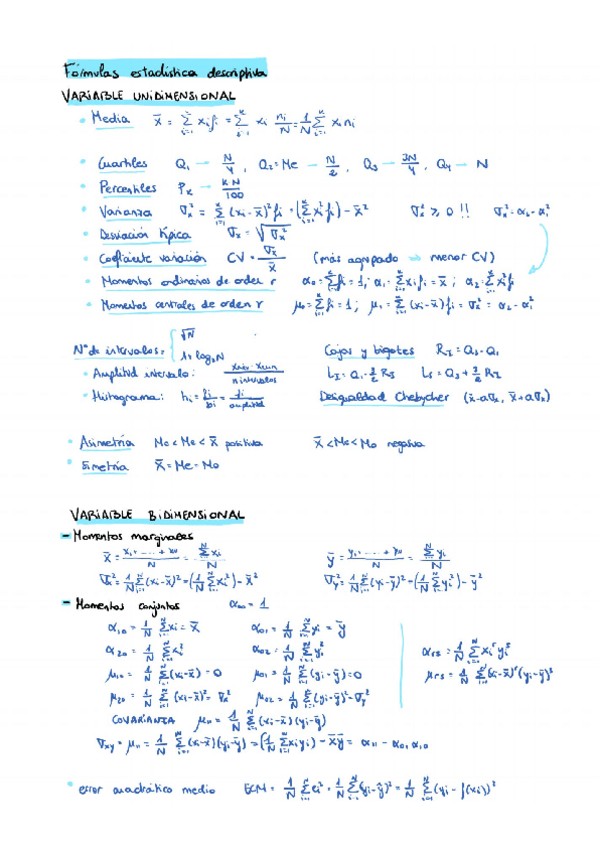 Fórmulas estadística descriptiva
VARIABLE UNIDIMENSIONAL
• Media x̄ = Σᵢ₌₁ᵏ xᵢfᵢ = Σᵢ₌₁ᵏ xᵢ nᵢ/N = 1/N Σᵢ₌₁ᵏ xᵢnᵢ
• Cuartiles Q₁ → N/4, Q₂=Me → N/2, Q₃ → 3N/4, Q₄ → N
• Percentiles Pₖ → kN/100
• Varianza σₓ² = Σᵢ₌₁ᵏ (xᵢ-x̄)²fᵢ = (Σᵢ₌₁ᵏ xᵢ²fᵢ) - x̄² σₓ² ≥ 0 !! σₓ² = α₂-α₁²
• Desviación típica σₓ = √σₓ²
• Coeficiente variación CV = σₓ/x̄ (más agrupado → menor CV)
• Momentos ordinarios de orden r α₀ = Σᵢ₌₁ᵏ fᵢ = 1; α₁ = Σᵢ₌₁ᵏ xᵢfᵢ = x̄; α₂ = Σᵢ₌₁ᵏ xᵢ²fᵢ
• Momentos centrales de orden r μ₀ = Σᵢ₌₁ᵏ fᵢ = 1; μ₁ = Σᵢ₌₁ᵏ (xᵢ-x̄)fᵢ = σₓ² = α₂-α₁²
Nº de intervalos = { √N
1+log₂N
Cajas y bigotes R_I = Q₃-Q₁
• Amplitud intervalo: xmáx-xmín / n intervalos L_I = Q₁-3/2 R_I Ls = Q₃+3/2 R_I
• Histograma: hᵢ = fᵢ/bᵢ = fᵢ/amplitud Desigualdad Chebycher (x̄-aσₓ, x̄+aσₓ)
• Asimetría Mo < Me < x̄ positiva x̄ < Me < Mo negativa
• Simetría x̄ = Me = Mo
VARIABLE BIDIMENSIONAL
- Momentos marginales
x̄ = x₁+...+x_N / N = Σᵢ₌₁ᴺ xᵢ / N ȳ = y₁+...+y_N / N = Σᵢ₌₁ᴺ yᵢ / N
σₓ² = 1/N Σᵢ₌₁ᴺ (xᵢ-x̄)² = (1/N Σᵢ₌₁ᴺ xᵢ²) - x̄² σ_y² = 1/N Σᵢ₌₁ᴺ (yᵢ-ȳ)² = (1/N Σᵢ₌₁ᴺ yᵢ²) - ȳ²
- Momentos conjuntos α₀₀ = 1
α₁₀ = 1/N Σᵢ₌₁ᴺ xᵢ = x̄ α₀₁ = 1/N Σᵢ₌₁ᴺ yᵢ = ȳ
α₂₀ = 1/N Σᵢ₌₁ᴺ xᵢ² α₀₂ = 1/N Σᵢ₌₁ᴺ yᵢ² αrs = 1/N Σᵢ₌₁ᴺ xᵢʳyᵢˢ
μ₁₀ = 1/N Σᵢ₌₁ᴺ (xᵢ-x̄) = 0 μ₀₁ = 1/N Σᵢ₌₁ᴺ (yᵢ-ȳ) = 0 μrs = 1/N Σᵢ₌₁ᴺ (xᵢ-x̄)ʳ(yᵢ-ȳ)ˢ
μ₂₀ = 1/N Σᵢ₌₁ᴺ (xᵢ-x̄)² = σₓ² μ₀₂ = 1/N Σᵢ₌₁ᴺ (yᵢ-ȳ)² = σ_y²
COVARIANZA μ₁₁ = 1/N Σᵢ₌₁ᴺ (xᵢ-x̄)(yᵢ-ȳ)
σxy = μ₁₁ = 1/N Σᵢ₌₁ᴺ (xᵢ-x̄)(yᵢ-ȳ) = (1/N Σᵢ₌₁ᴺ xᵢyᵢ) - x̄ȳ = α₁₁ - α₀₁α₁₀
• error cuadrático medio ECM = 1/N Σᵢ₌₁ᴺ eᵢ² = 1/N Σᵢ₌₁ᴺ (yᵢ-ŷᵢ)² = 1/N Σᵢ₌₁ᴺ (yᵢ - f(xᵢ))²